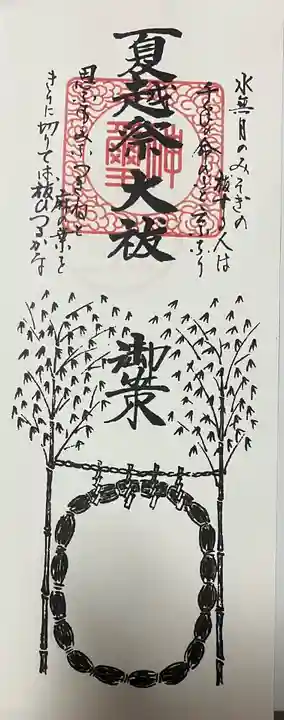 水無月のみそぎの
祓する人は
千とせの命のぶと云ふなり
夏越祭大祓
思ふ事みなつきねと
麻の葉を
きりに切りても祓ひつるかな
御策